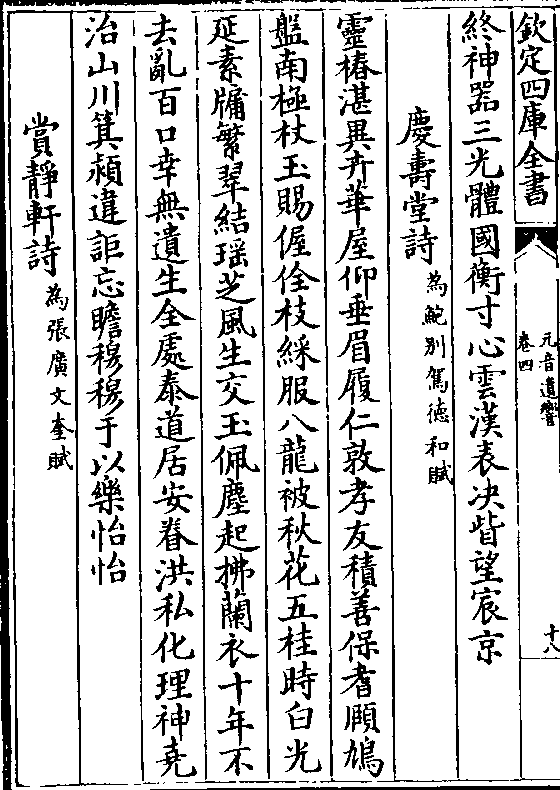 欽定四庫全書
元音遺響
卷四
十八
終神器三光體國衡寸心雲漢表決眥望宸京
慶壽堂詩
為鮑別駕德和賦
靈椿湛異卉華屋仰垂眉履仁敦孝友積善保耆頤鳩
盤南極杖玉賜偓佺枝綵服八龍被秋花五桂時白光
延素牖繁翠結瑶芝風生交玉佩塵起拂蘭衣十年不
去亂百口幸無遺生全處泰道居安眷洪私化理神堯
治山川箕潁違詎忘瞻穆穆于以樂怡怡
賞靜軒詩
為張廣文奎賦